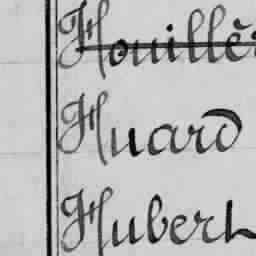 Houillè
Huard
Hubert